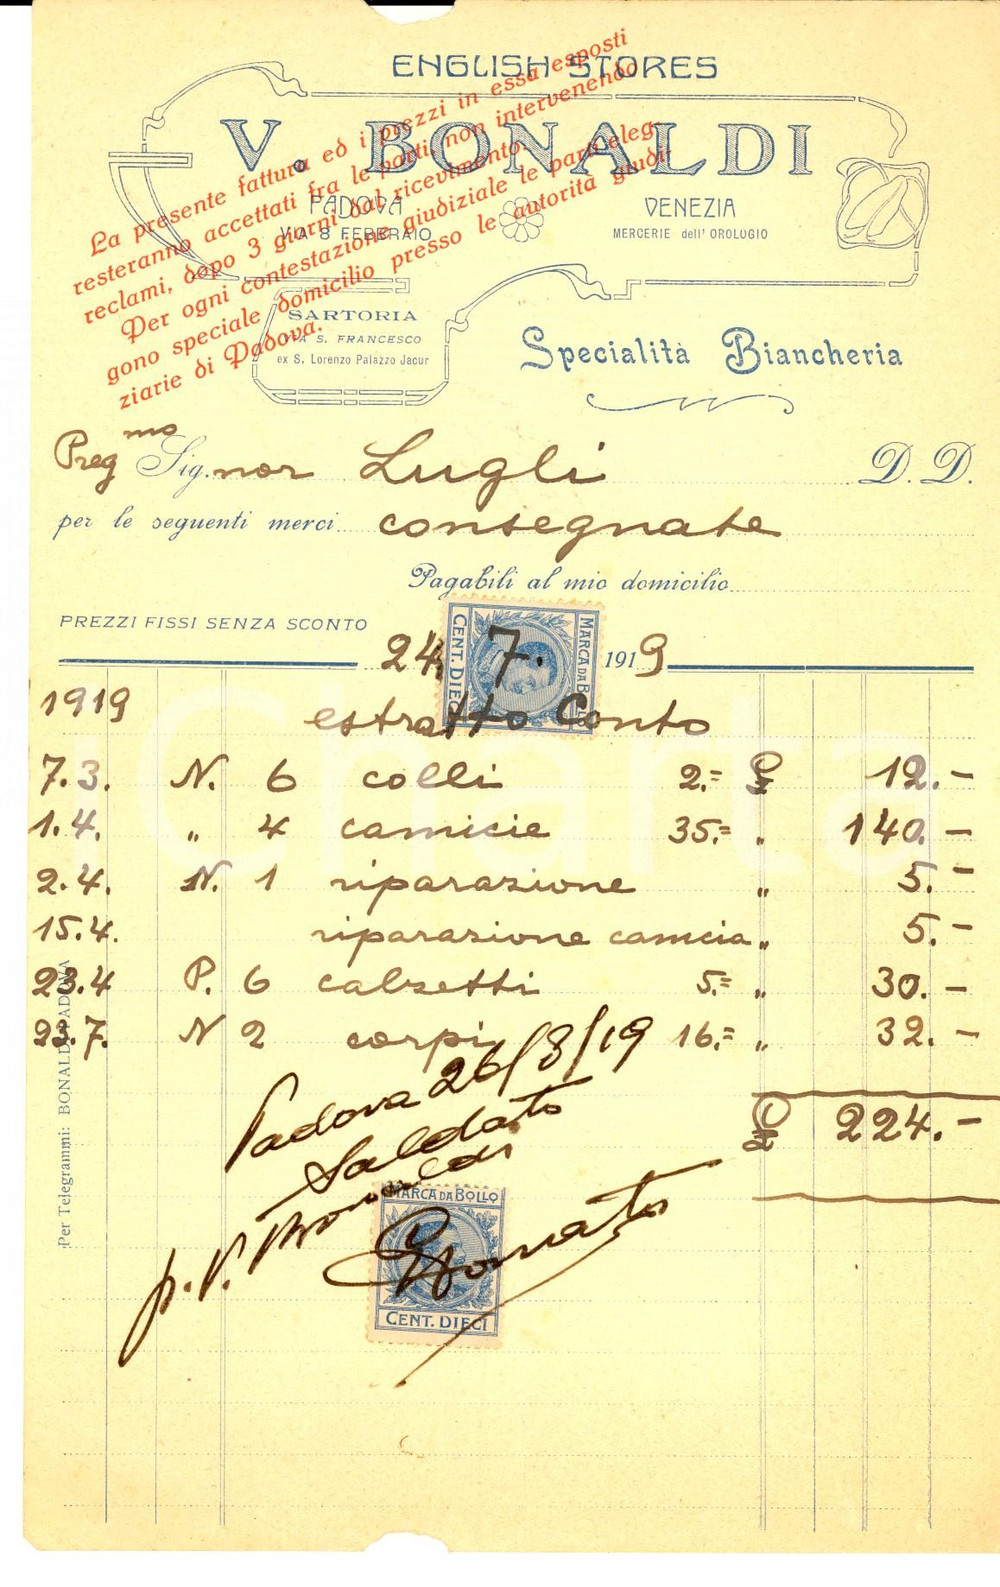 ENGLISH STORES
V. BONALDI
PADOVA
VIA 8 FEBBRAIO
VENEZIA
MERCERIE dell' OROLOGIO
La presente fattura ed i prezzi in essa esposti
resteranno accettati fra le parti, non intervenendo
reclami, dopo 3 giorni dal ricevimento.
Per ogni contestazione giudiziale le parti eleg-
gono speciale domicilio presso le autorità giudi-
ziarie di Padova.
SARTORIA
VIA S. FRANCESCO
ex S. Lorenzo Palazzo Jacur
Specialità Biancheria
Preg mo Sig.nor Lugli D. D.
per le seguenti merci consegnate
Pagabili al mio domicilio
PREZZI FISSI SENZA SCONTO
24 7. 1919
MARCA DA BOLLO
CENT. DIECI
1919 estratto Conto
7.3. N. 6 colli 2.= £ 12.-
1.4. " 4 camicie 35.= " 140.-
2.4. N. 1 riparazione " 5.-
15.4. riparazione camicia " 5.-
23.4 P. 6 calzetti 5.= " 30.-
23.7. N 2 corpi 16.= " 32.-
£ 224.-
Padova 26/8/19
Saldato
p. V. Bonaldi
MARCA DA BOLLO
CENT. DIECI
Per Telegrammi: BONALDI PADOVA
Charta